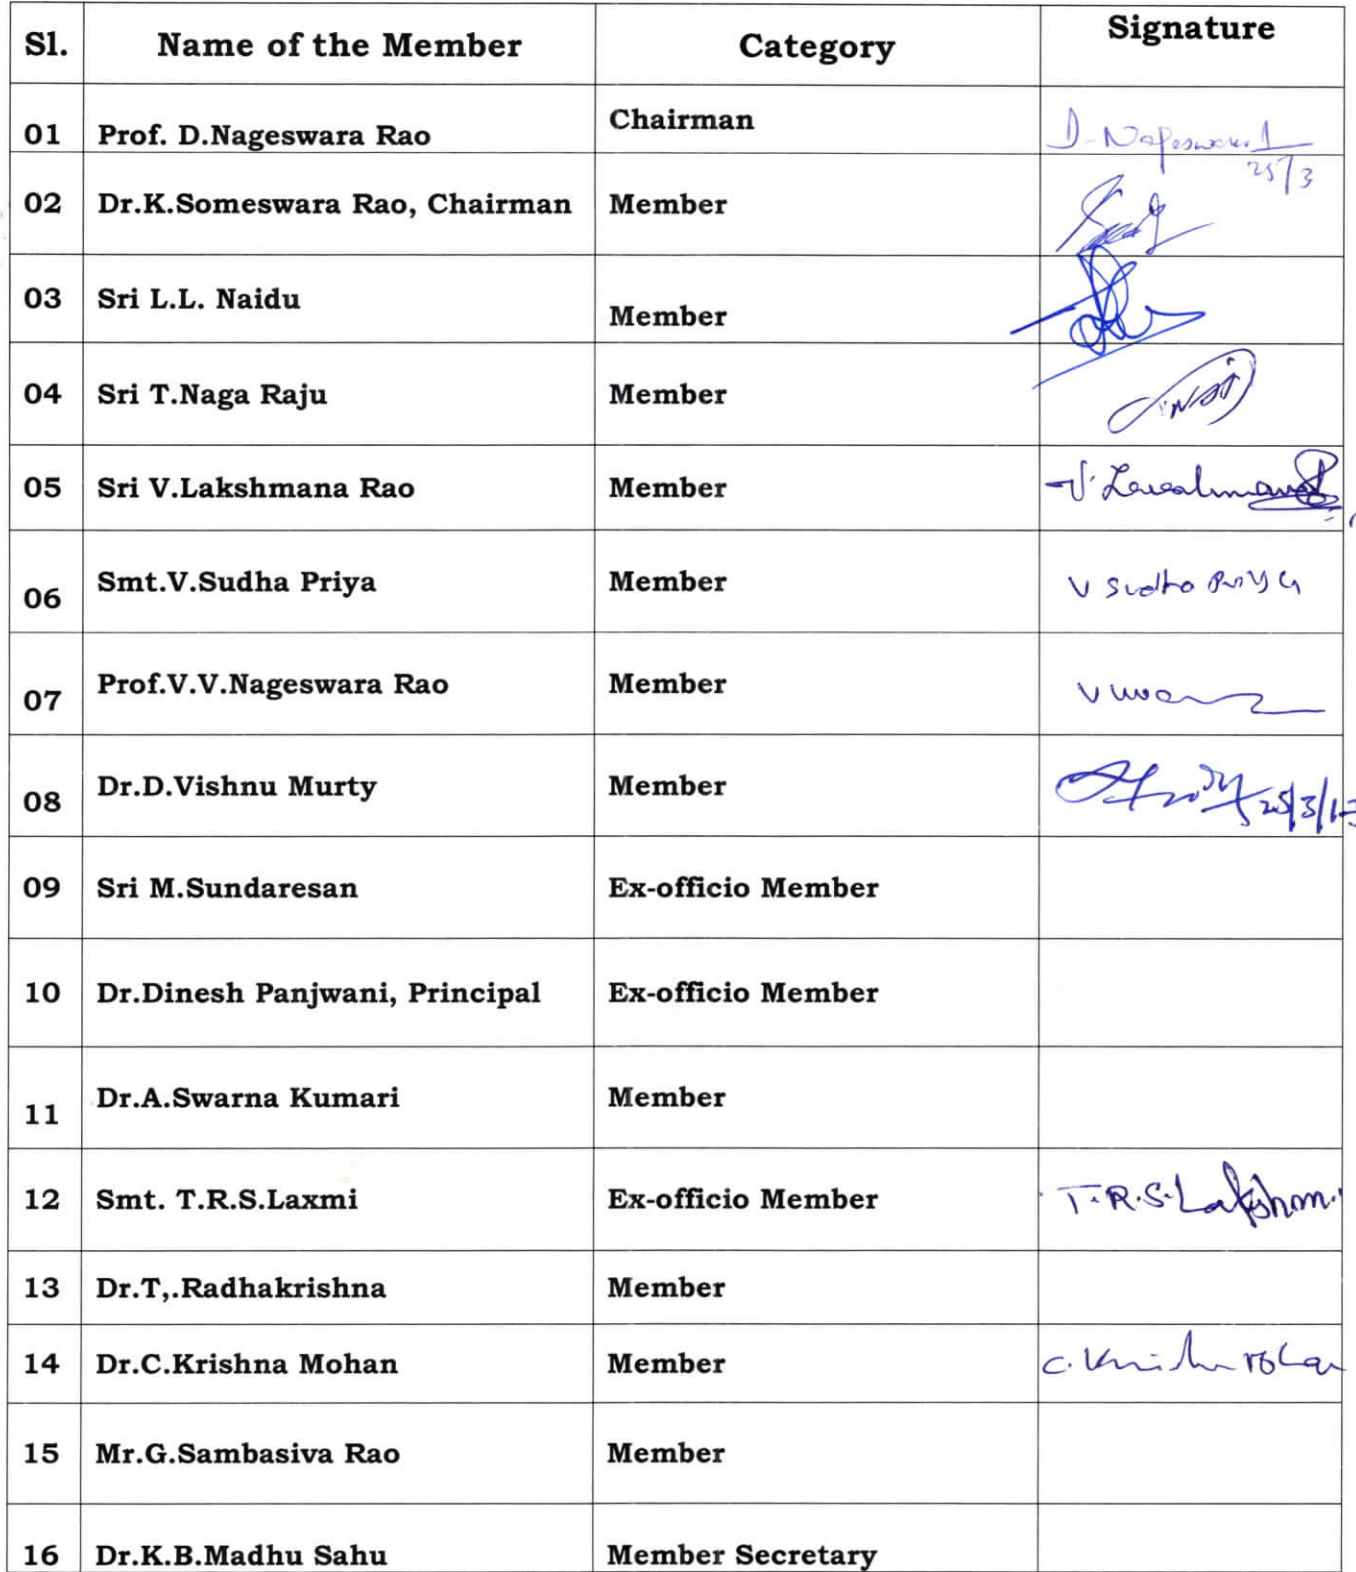 Sl. Name of the Member Category Signature
01 Prof. D.Nageswara Rao Chairman D. Nageswara
25/3
02 Dr.K.Someswara Rao, Chairman Member
03 Sri L.L. Naidu Member
04 Sri T.Naga Raju Member
05 Sri V.Lakshmana Rao Member V.
06 Smt.V.Sudha Priya Member V Sudha Priya
07 Prof.V.V.Nageswara Rao Member
08 Dr.D.Vishnu Murty Member 25/3/13
09 Sri M.Sundaresan Ex-officio Member
10 Dr.Dinesh Panjwani, Principal Ex-officio Member
11 Dr.A.Swarna Kumari Member
12 Smt. T.R.S.Laxmi Ex-officio Member T.R.S.Lakshmi
13 Dr.T,.Radhakrishna Member
14 Dr.C.Krishna Mohan Member C. Krishna Mohan
15 Mr.G.Sambasiva Rao Member
16 Dr.K.B.Madhu Sahu Member Secretary